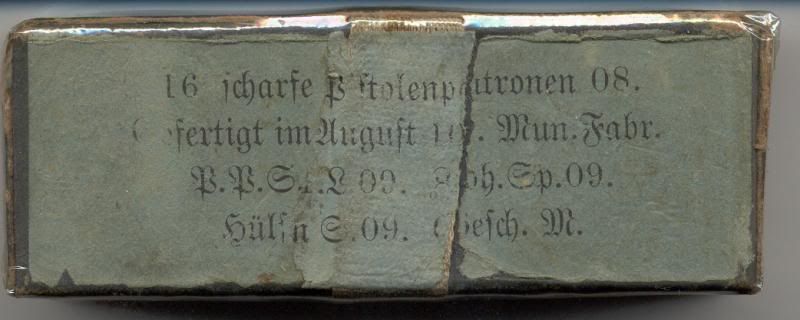 16 scharfe Pistolenpatronen 08.
Gefertigt im August Mun. Fabr.
P.P.St.L.09. Zdh.Sp.09.
Hülsn S.09. Gesch. M.